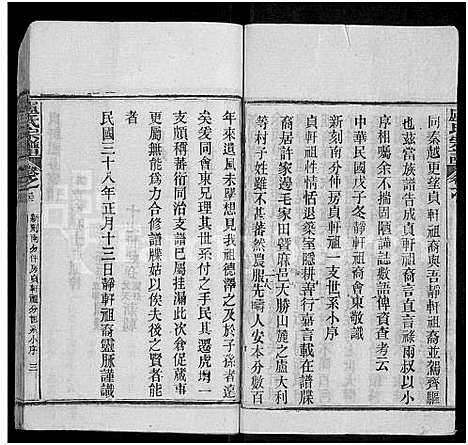 同秦越更望貞軒祖裔與吾靜軒祖裔並駕齊驅
也茲當族譜告竣兩房世系小引經雨叔以小
序相屬余不揣固陋謹誌數語俾資查考云
中華民國戊子冬靜軒祖裔會東敬識
新刻南分仲房貞軒祖一支世系小序
貞軒祖情性戊退樂室隱耕善行嘉言載在譜牒
裔居許見邊毛家田暨麻邑大勝山麓之盧大利
等村子姓雖不甚蕃然農服先疇人安本分數百
年來遺風未墜想見我祖德澤之及於子孫者遠
矣爰同會東兄理其世系付之手民其遷虎塆一
支頗稱蕃衍同治支譜已屬挂漏此次倉促蕆事
更屬無能爲力合修譜牒姑以俟夫後之賢者能
者
民國三十八年正月十三日靜軒祖裔靈脈謹識
盧氏宗譜
卷之
新刻南分仲房貞軒祖分世系小序
三
盧氏宗譜